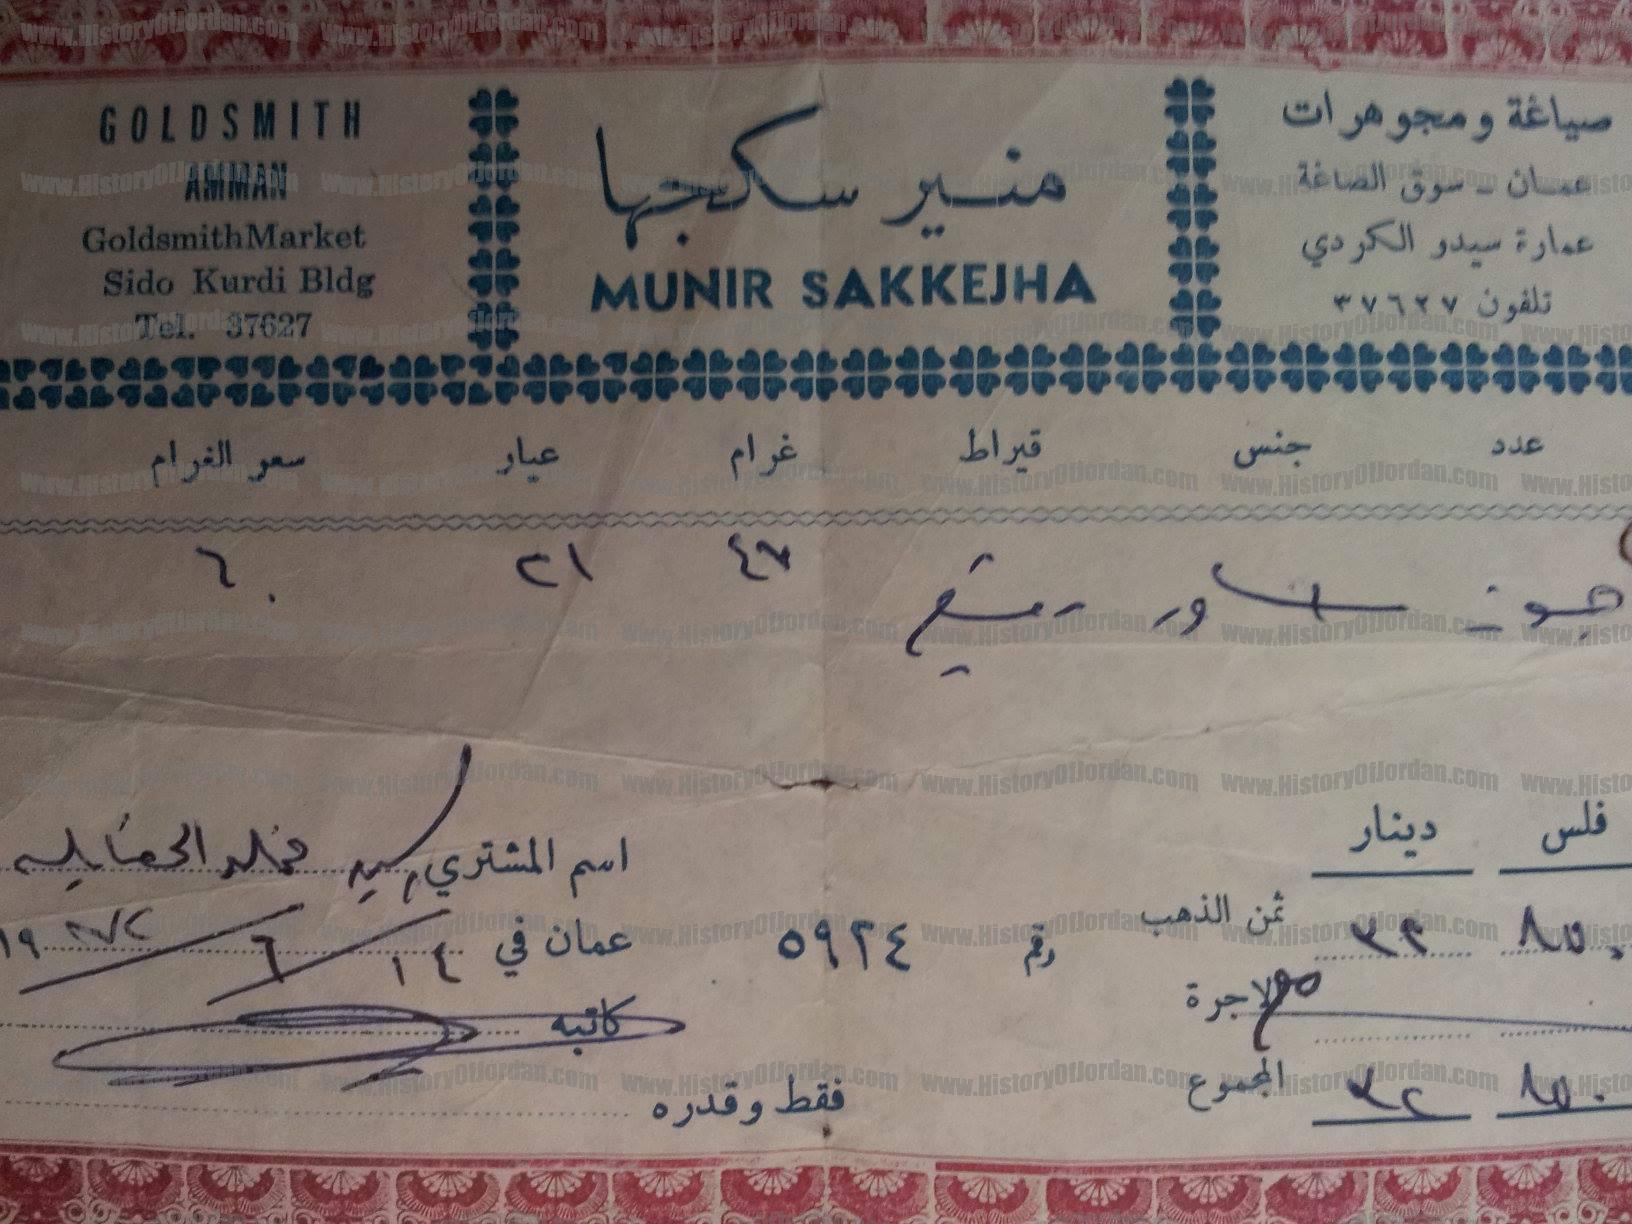 GOLDSMITH
AMMAN
GoldsmithMarket
Sido Kurdi Bldg
Tel. 37627
منير سكجها
MUNIR SAKKEJHA
صياغة ومجوهرات
عمان - سوق الصاغة
عمارة سيدو الكردي
تلفون ٣٧٦٢٧
عدد جنس قيراط غرام عيار سعر الغرام
٢١
فلس دينار
اسم المشتري السيد محمد
ثمن الذهب
رقم ٥٩٢٤
عمان في ١٤ / ٦ / ١٩
الاجرة
كاتبه
المجموع
فقط وقدره
www.HistoryOfJordan.com